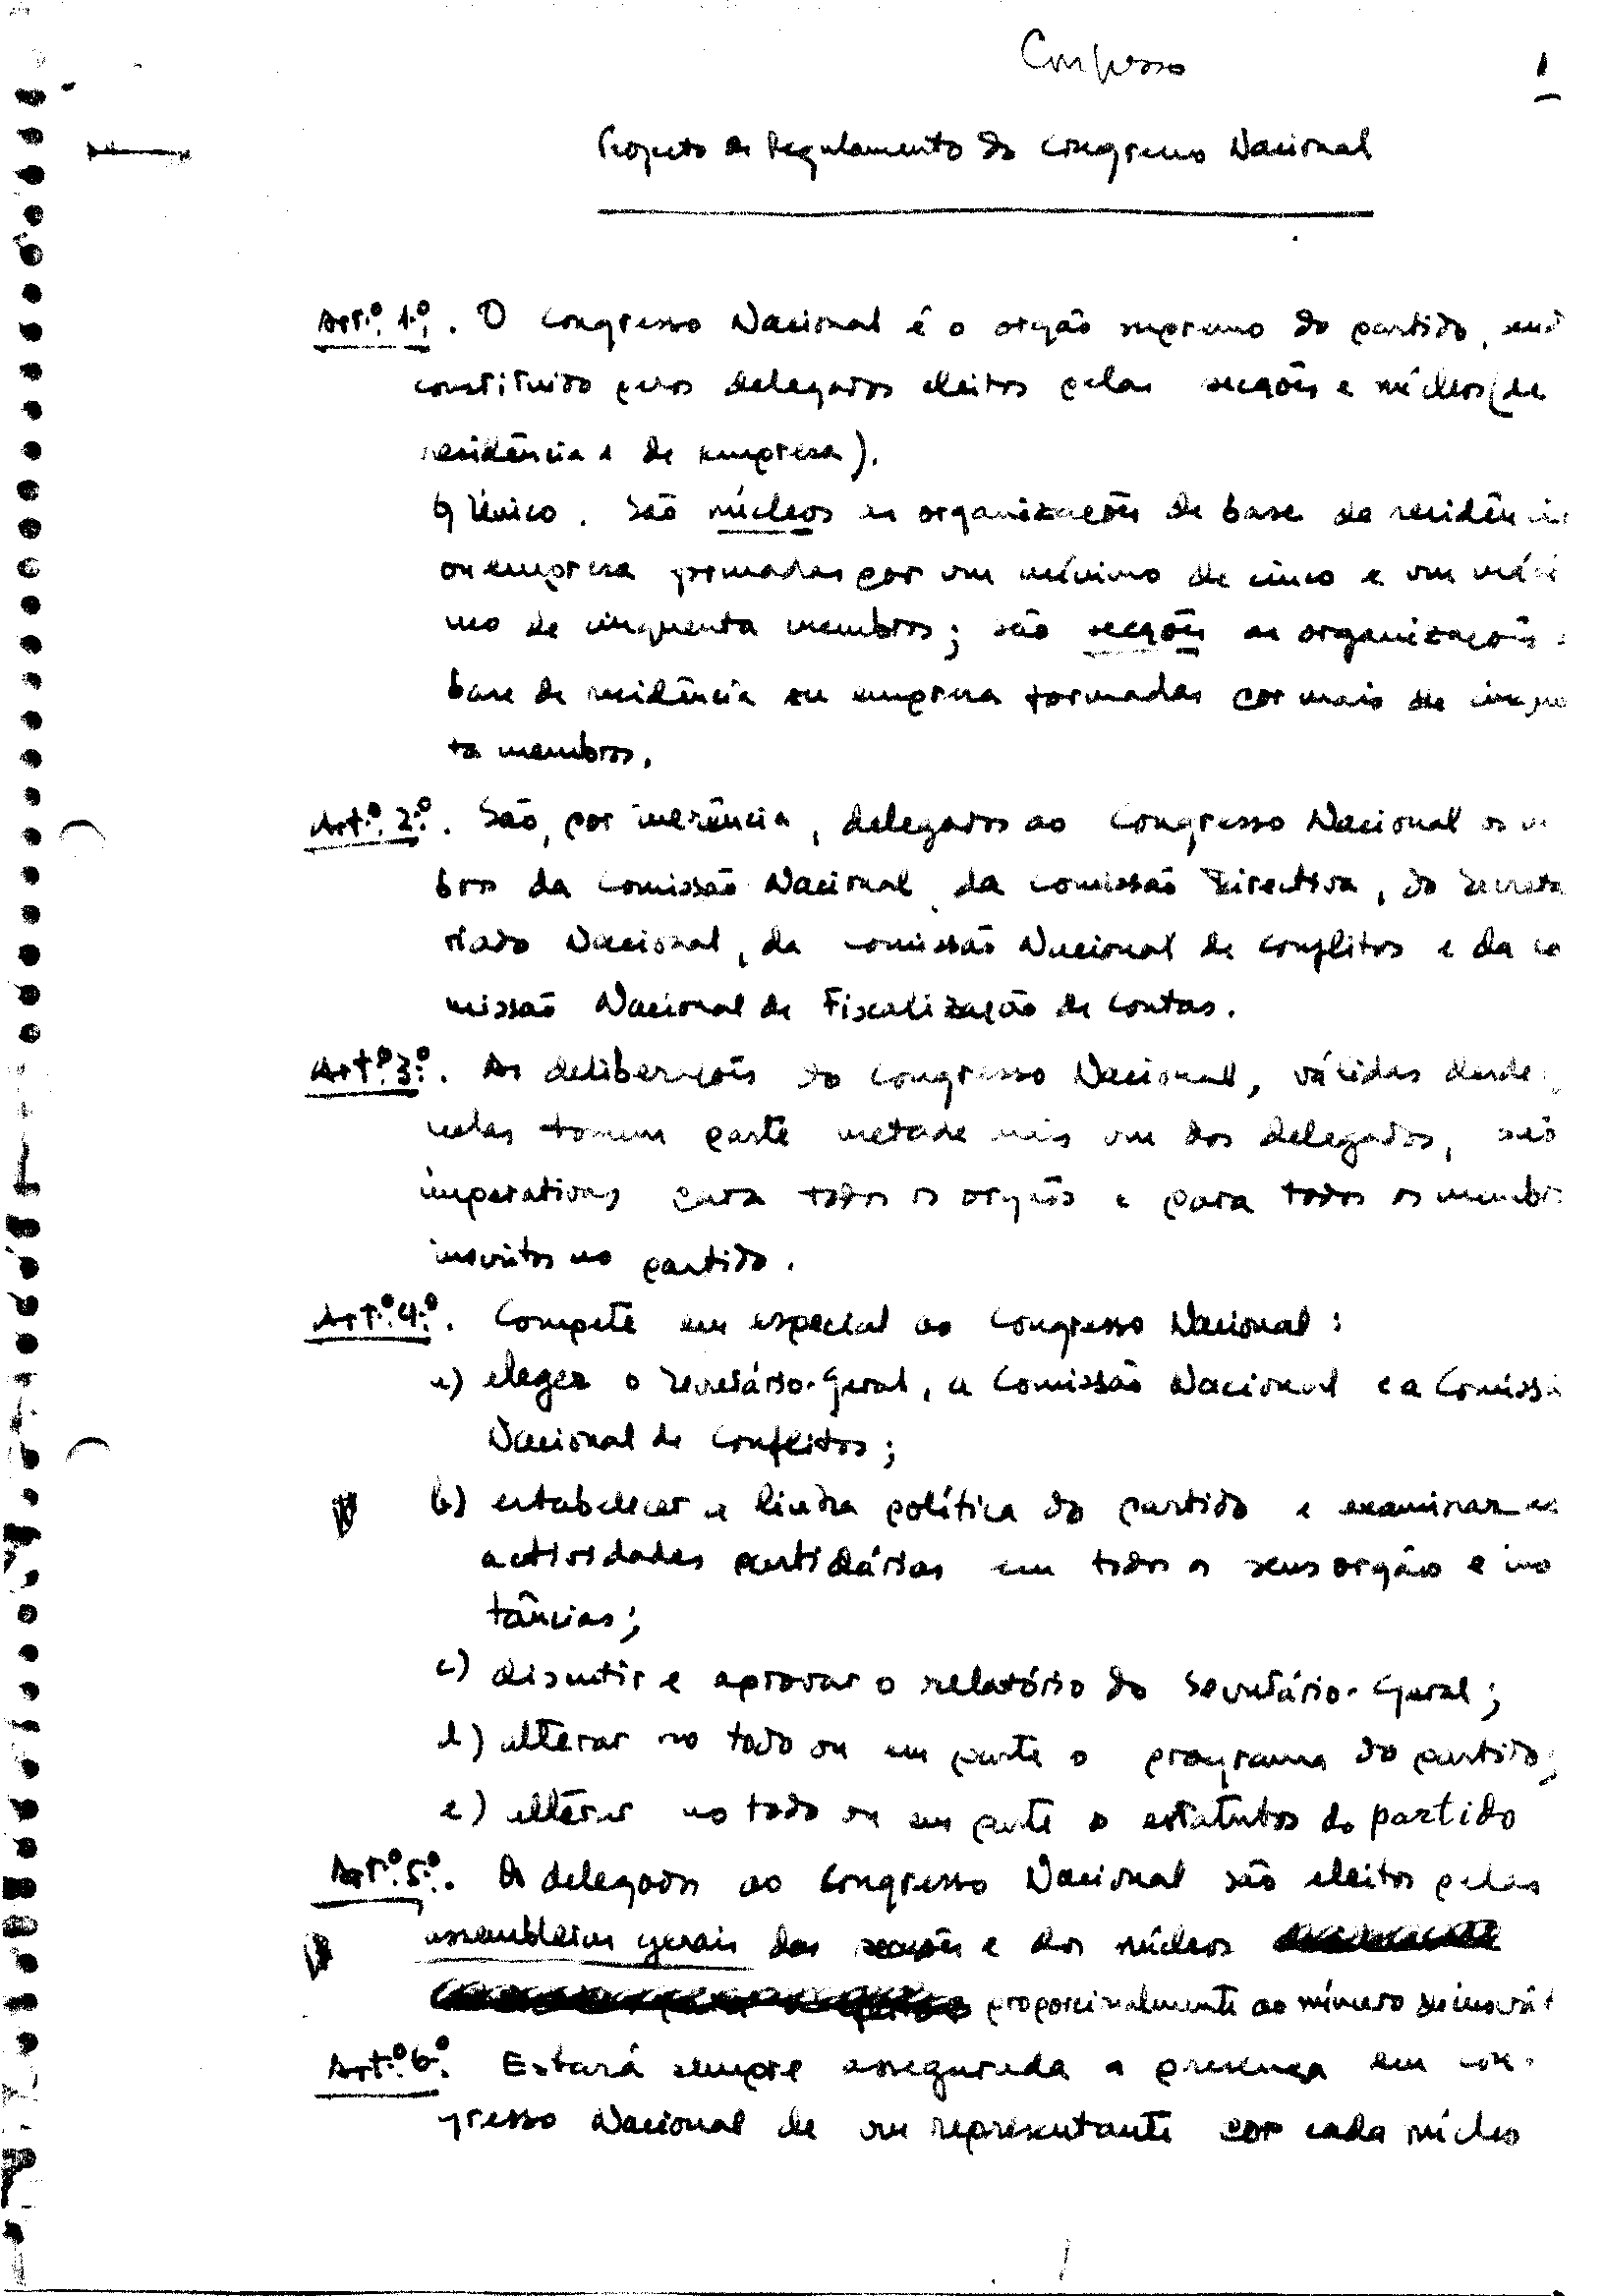 Congresso
1
Projeto de Regulamento do Congresso Nacional
Artº. 1º. . O Congresso Nacional é o orgão supremo do partido, send
constituido pelos delegados eleitos pelas secções e núcleos (de
residência e de empresa).
§ Único. São núcleos as organizações de base de residênci
ou empresa formadas por um mínimo de cinco e um máxi
mo de cinquenta membros; são secções as organizações
base de residência ou empresa formadas por mais de cinquen
ta membros.
Artº. 2º. . São, por inerência, delegados ao Congresso Nacional os
bros da Comissão Nacional, da Comissão Directiva, do Secreta
riado Nacional, da Comissão Nacional de Conflitos e da Co
missão Nacional de Fiscalização de Contas.
Artº. 3º. . As deliberações do Congresso Nacional, válidas desde
nelas tomem parte metade mais um dos delegados, são
imperativas para todos os orgãos e para todos os membr
inscritos no partido.
Artº. 4º. . Compete em especial ao Congresso Nacional:
a) eleger o Secretário-Geral, a Comissão Nacional e a Comissã
Nacional de Conflitos;
b) estabelecer a linha política do partido e examinar as
actividades partidárias em todos os seus orgão e ins
tâncias;
c) discutir e aprovar o relatório do Secretário-Geral;
d) alterar no todo ou em parte o programa do partido;
e) alterar no todo ou em parte os estatutos do partido
Artº. 5º. . Os delegados ao Congresso Nacional são eleitos pelas
assembleias gerais das secções e dos núcleos
proporcionalmente ao número de inscrit
Artº. 6º. Estará sempre assegurada a presença em Con-
gresso Nacional de um representante por cada núcleo